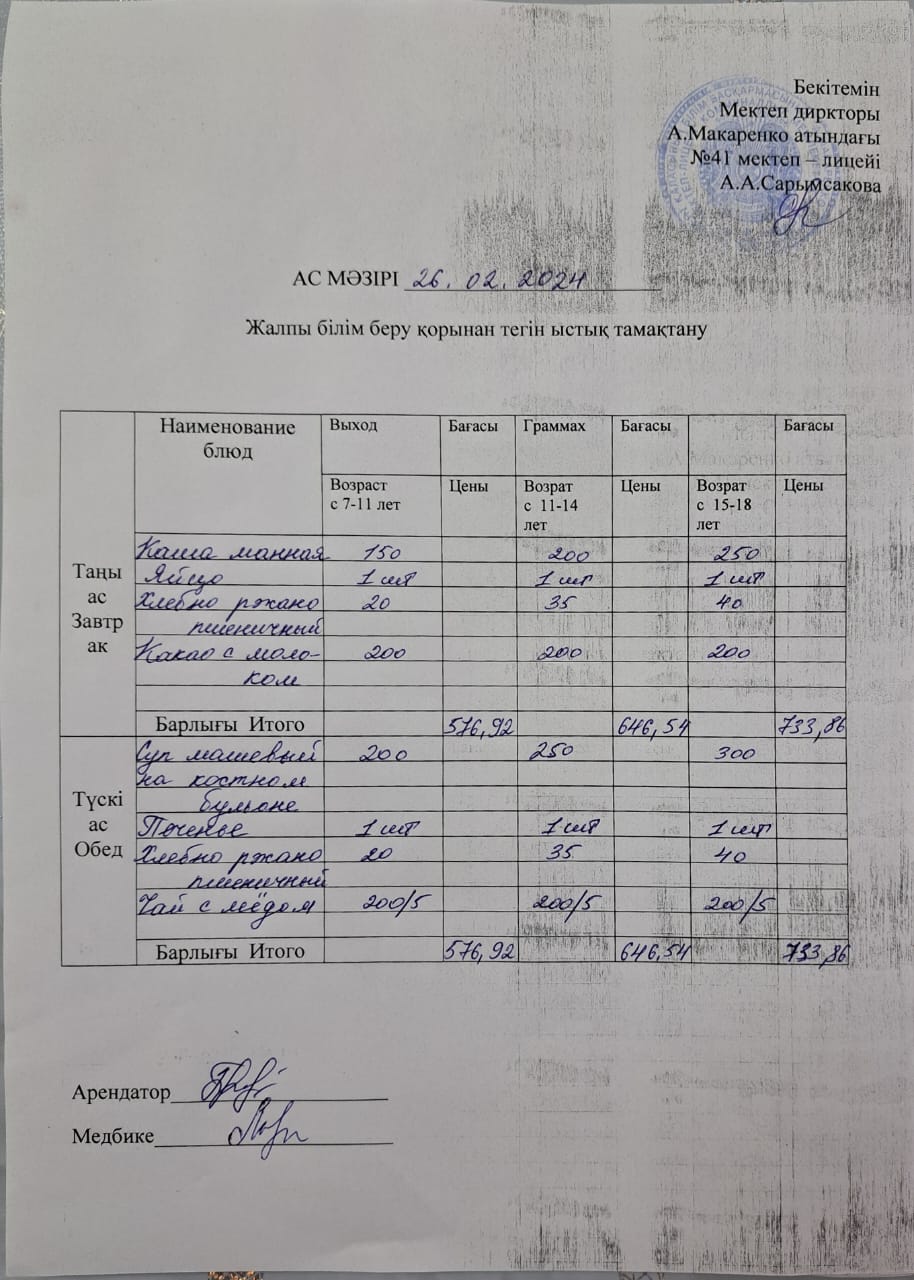 Бекітемін
Мектеп диркторы
А.Макаренко атындағы
№41 мектеп – лицейі
А.А.Сарымсакова
АС МӘЗІРІ 26.02.2024
Жалпы білім беру қорынан тегін ыстық тамақтану
Наименование блюд Выход Бағасы Граммах Бағасы Бағасы
Возраст с 7-11 лет Цены Возрат с 11-14 лет Цены Возрат с 15-18 лет Цены
Таңы ас Завтр ак
Каша манная 150 200 250
Яйцо 1 шт 1 шт 1 шт
Хлебно ржано 20 35 40
пшеничный
Какао с моло- 200 200 200
ком
Барлығы Итого 576,92 646,54 733,86
Түскі ас Обед
Суп машевый 200 250 300
на костном
бульоне
Печенье 1 шт 1 шт 1 шт
Хлебно ржано 20 35 40
пшеничный
Чай с мёдом 200/5 200/5 200/5
Барлығы Итого 576,92 646,54 733,86
Арендатор
Медбике